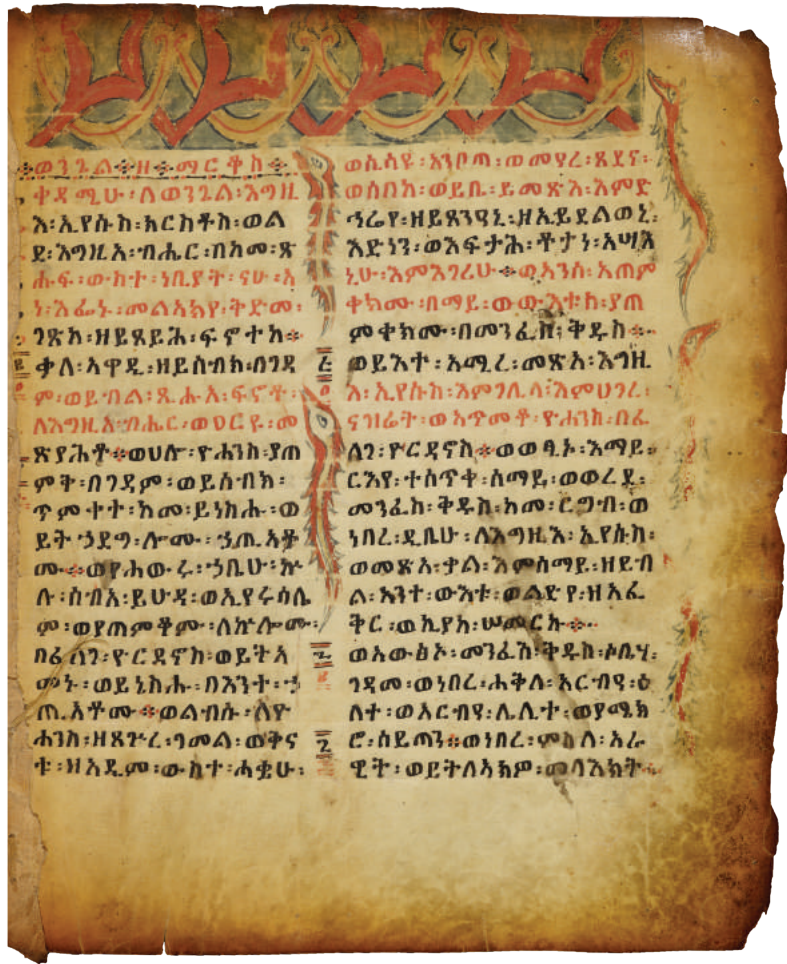 ወንጌል፨ዘ፨ማርቆስ፨
ቀዳሚሁ፡ለወንጌል፡እግዚ
እ፡ኢየሱስ፡ክርስቶስ፡ወል
ደ፡እግዚአ፡ብሔር፡በከመ፡ጽ
ሑፍ፡ውስተ፡ነቢያት፡ናሁ፡አ
ነ፡እፌኑ፡መልአክየ፡ቅድመ፡
ገጽከ፡ዘይጸይሕ፡ፍኖተከ፨
ቃለ፡አዋዲ፡ዘይሰብክ፡በገዳ
ም፡ወይብል፡ጺሑአ፡ፍኖተ፡
ለእግዚአ፡ብሔር፡ወዐርዩ፡መ
ጽያሕቶ፨ወሀሎ፡ዮሐንስ፡ያጠ
ምቅ፡በገዳም፡ወይሰብክ፡
ጥምቀተ፡ከመ፡ይነስሑ፡ወ
ይትኃደግ፡ሎሙ፡ኃጢአቶ
ሙ፨ወየሐውሩ፡ኃቤሁ፡ኵ
ሉ፡ሰብአ፡ይሁዳ፡ወኢየሩሳሌ
ም፡ወያጠምቆሙ፡ለኵሎሙ፡
በፈለገ፡ዮርዳኖስ፡ወይትአ
መኑ፡ወይኔስሑ፡በእንተ፡ኃ
ጢአቶሙ፨ወልብሱ፡ለዮ
ሐንስ፡ዘጸጕረ፡ገመል፡ወቅና
ቱ፡ዘአዲም፡ውስተ፡ሐቌሁ፡
ወሲሳዩ፡አንቦጣ፡ወመዓረ፡ጸደና፡
ወሰበከ፡ወይቤ፡ይመጽእ፡እምድ
ኅሬየ፡ዘይጸንዓኒ፡ዘኢይደልወኒ፡
እድነን፡ወእፍታሕ፡ቶታነ፡አሣእ
ኒሁ፡እምእገሪሁ፨ወአንሰ፡አጠም
ቀክሙ፡በማይ፡ወውእቱሰ፡ያጠ
ምቀክሙ፡በመንፈስ፡ቅዱስ፨
ወይእተ፡አሚረ፡መጽአ፡እግዚ
እ፡ኢየሱስ፡እምገሊላ፡እምሀገረ፡
ናዝሬት፡ወአጥመቆ፡ዮሐንስ፡በፈ
ለገ፡ዮርዳኖስ፨ወወፂኦ፡እማይ፡
ርእየ፡ተሰጥቀ፡ሰማይ፡ወወረደ፡
መንፈስ፡ቅዱስ፡ከመ፡ርግብ፡ወ
ነበረ፡ዲቤሁ፡ለእግዚእ፡ኢየሱስ፡
ወመጽአ፡ቃል፡እምሰማይ፡ዘይብ
ል፡አንተ፡ውእቱ፡ወልድየ፡ዘአፈ
ቅር፡ወኪያከ፡ሠመርኩ፨
ወአውፅኦ፡መንፈስ፡ቅዱስ፡ሶቤሃ፡
ገዳመ፡ወነበረ፡ሐቅለ፡አርብዓ፡ዕ
ለተ፡ወአርብዓ፡ሌሊተ፡ወያሜክ
ሮ፡ሰይጣን፨ወነበረ፡ምስለ፡አራ
ዊት፡ወይትለአክዎ፡መላእክት፨